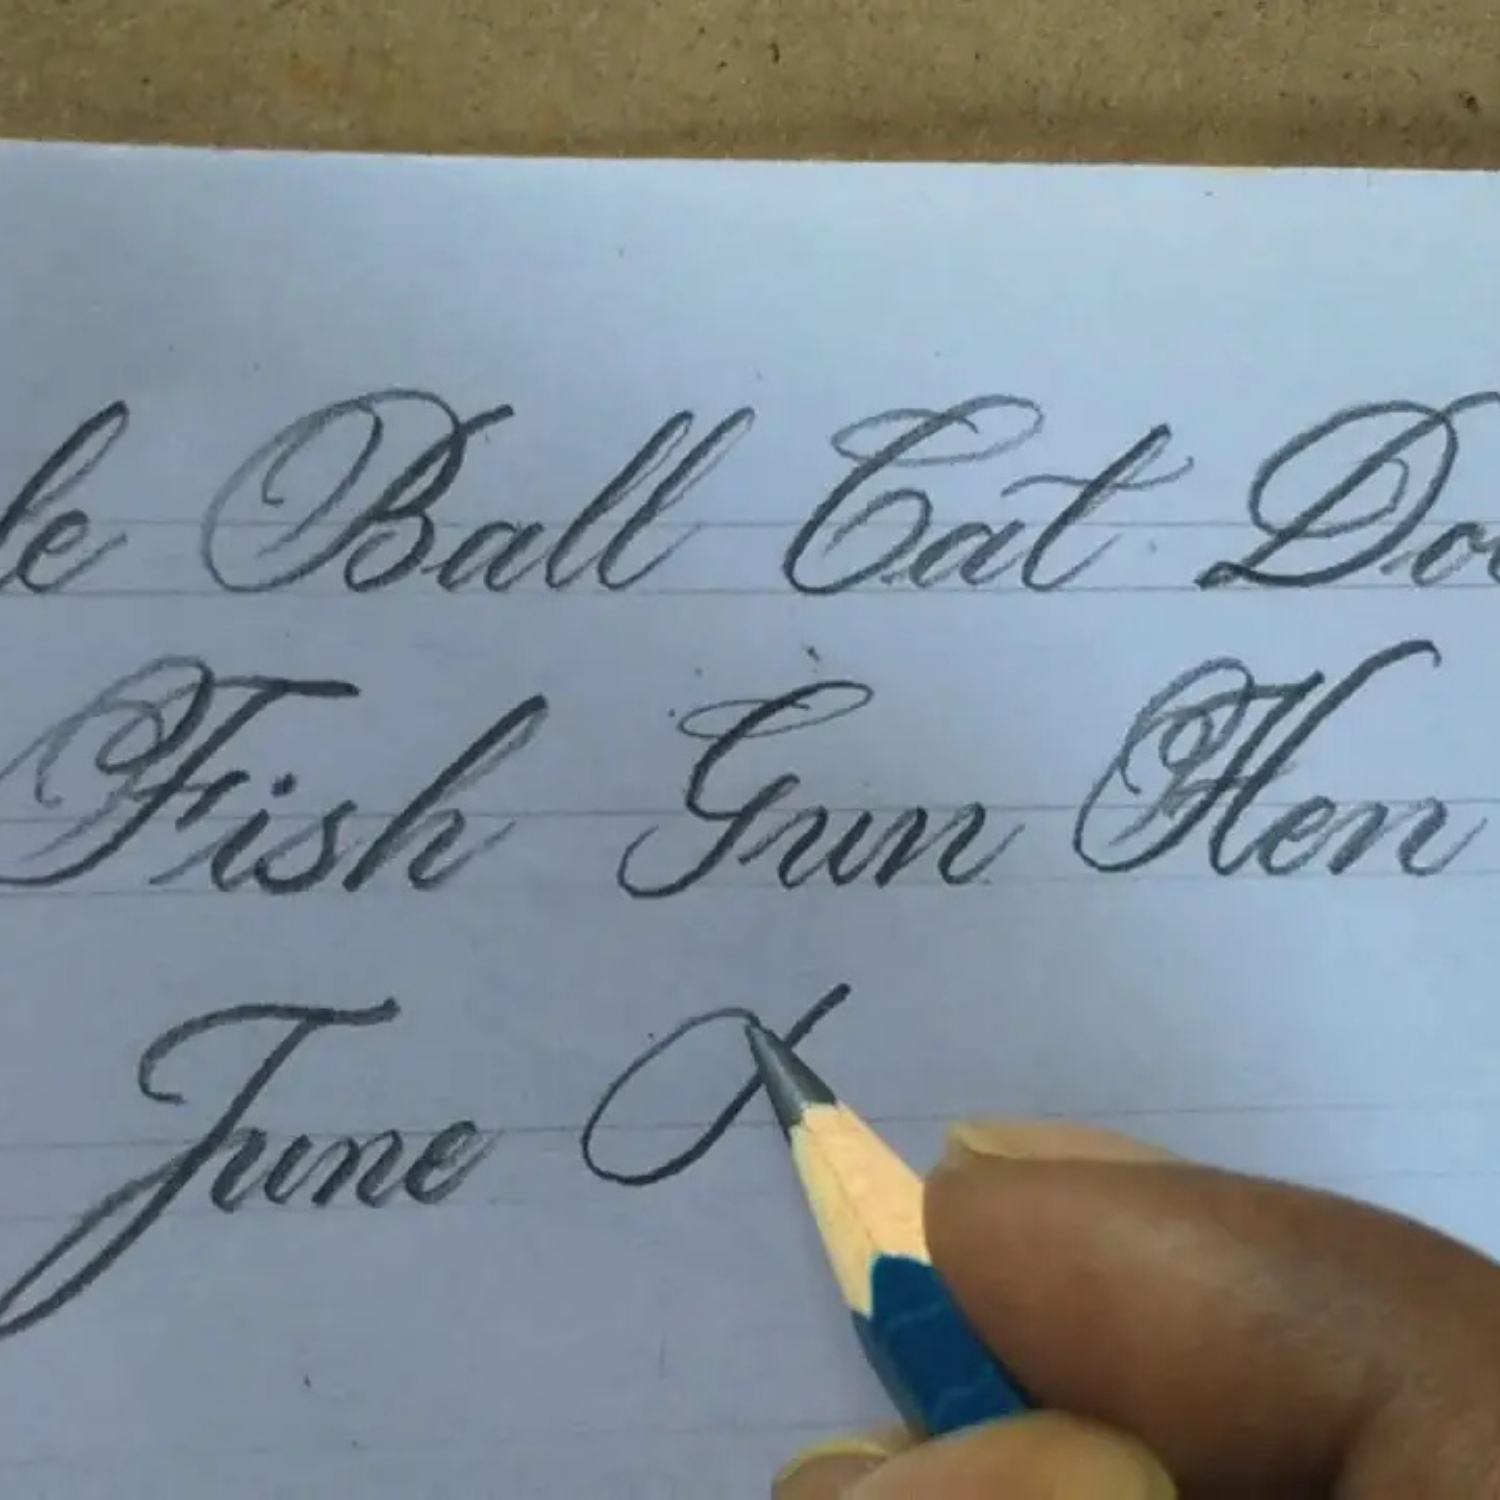 le Ball Cat Do
Fish Gun Hen
June